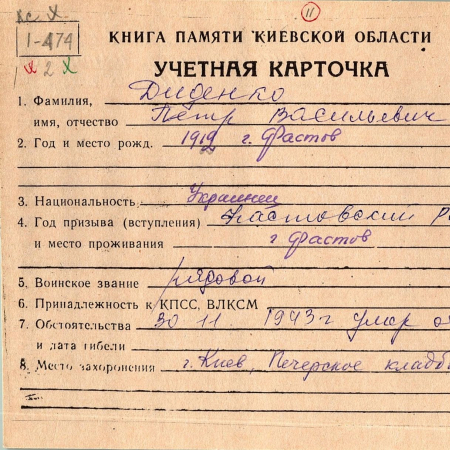 11
КС X
1-474
X 2 X
КНИГА ПАМЯТИ КИЕВСКОЙ ОБЛАСТИ
УЧЕТНАЯ КАРТОЧКА
1. Фамилия, Диденко
имя, отчество Петр Васильевич
2. Год и место рожд. 1912 г. Фастов
3. Национальность Украинец
4. Год призыва (вступления) Фастовский
и место проживания г Фастов
5. Воинское звание рядовой
6. Принадлежность к КПСС, ВЛКСМ
7. Обстоятельства 30 11 1943 г умер о
и дата гибели
8. Место захоронения г. Киев, Печерское кладб